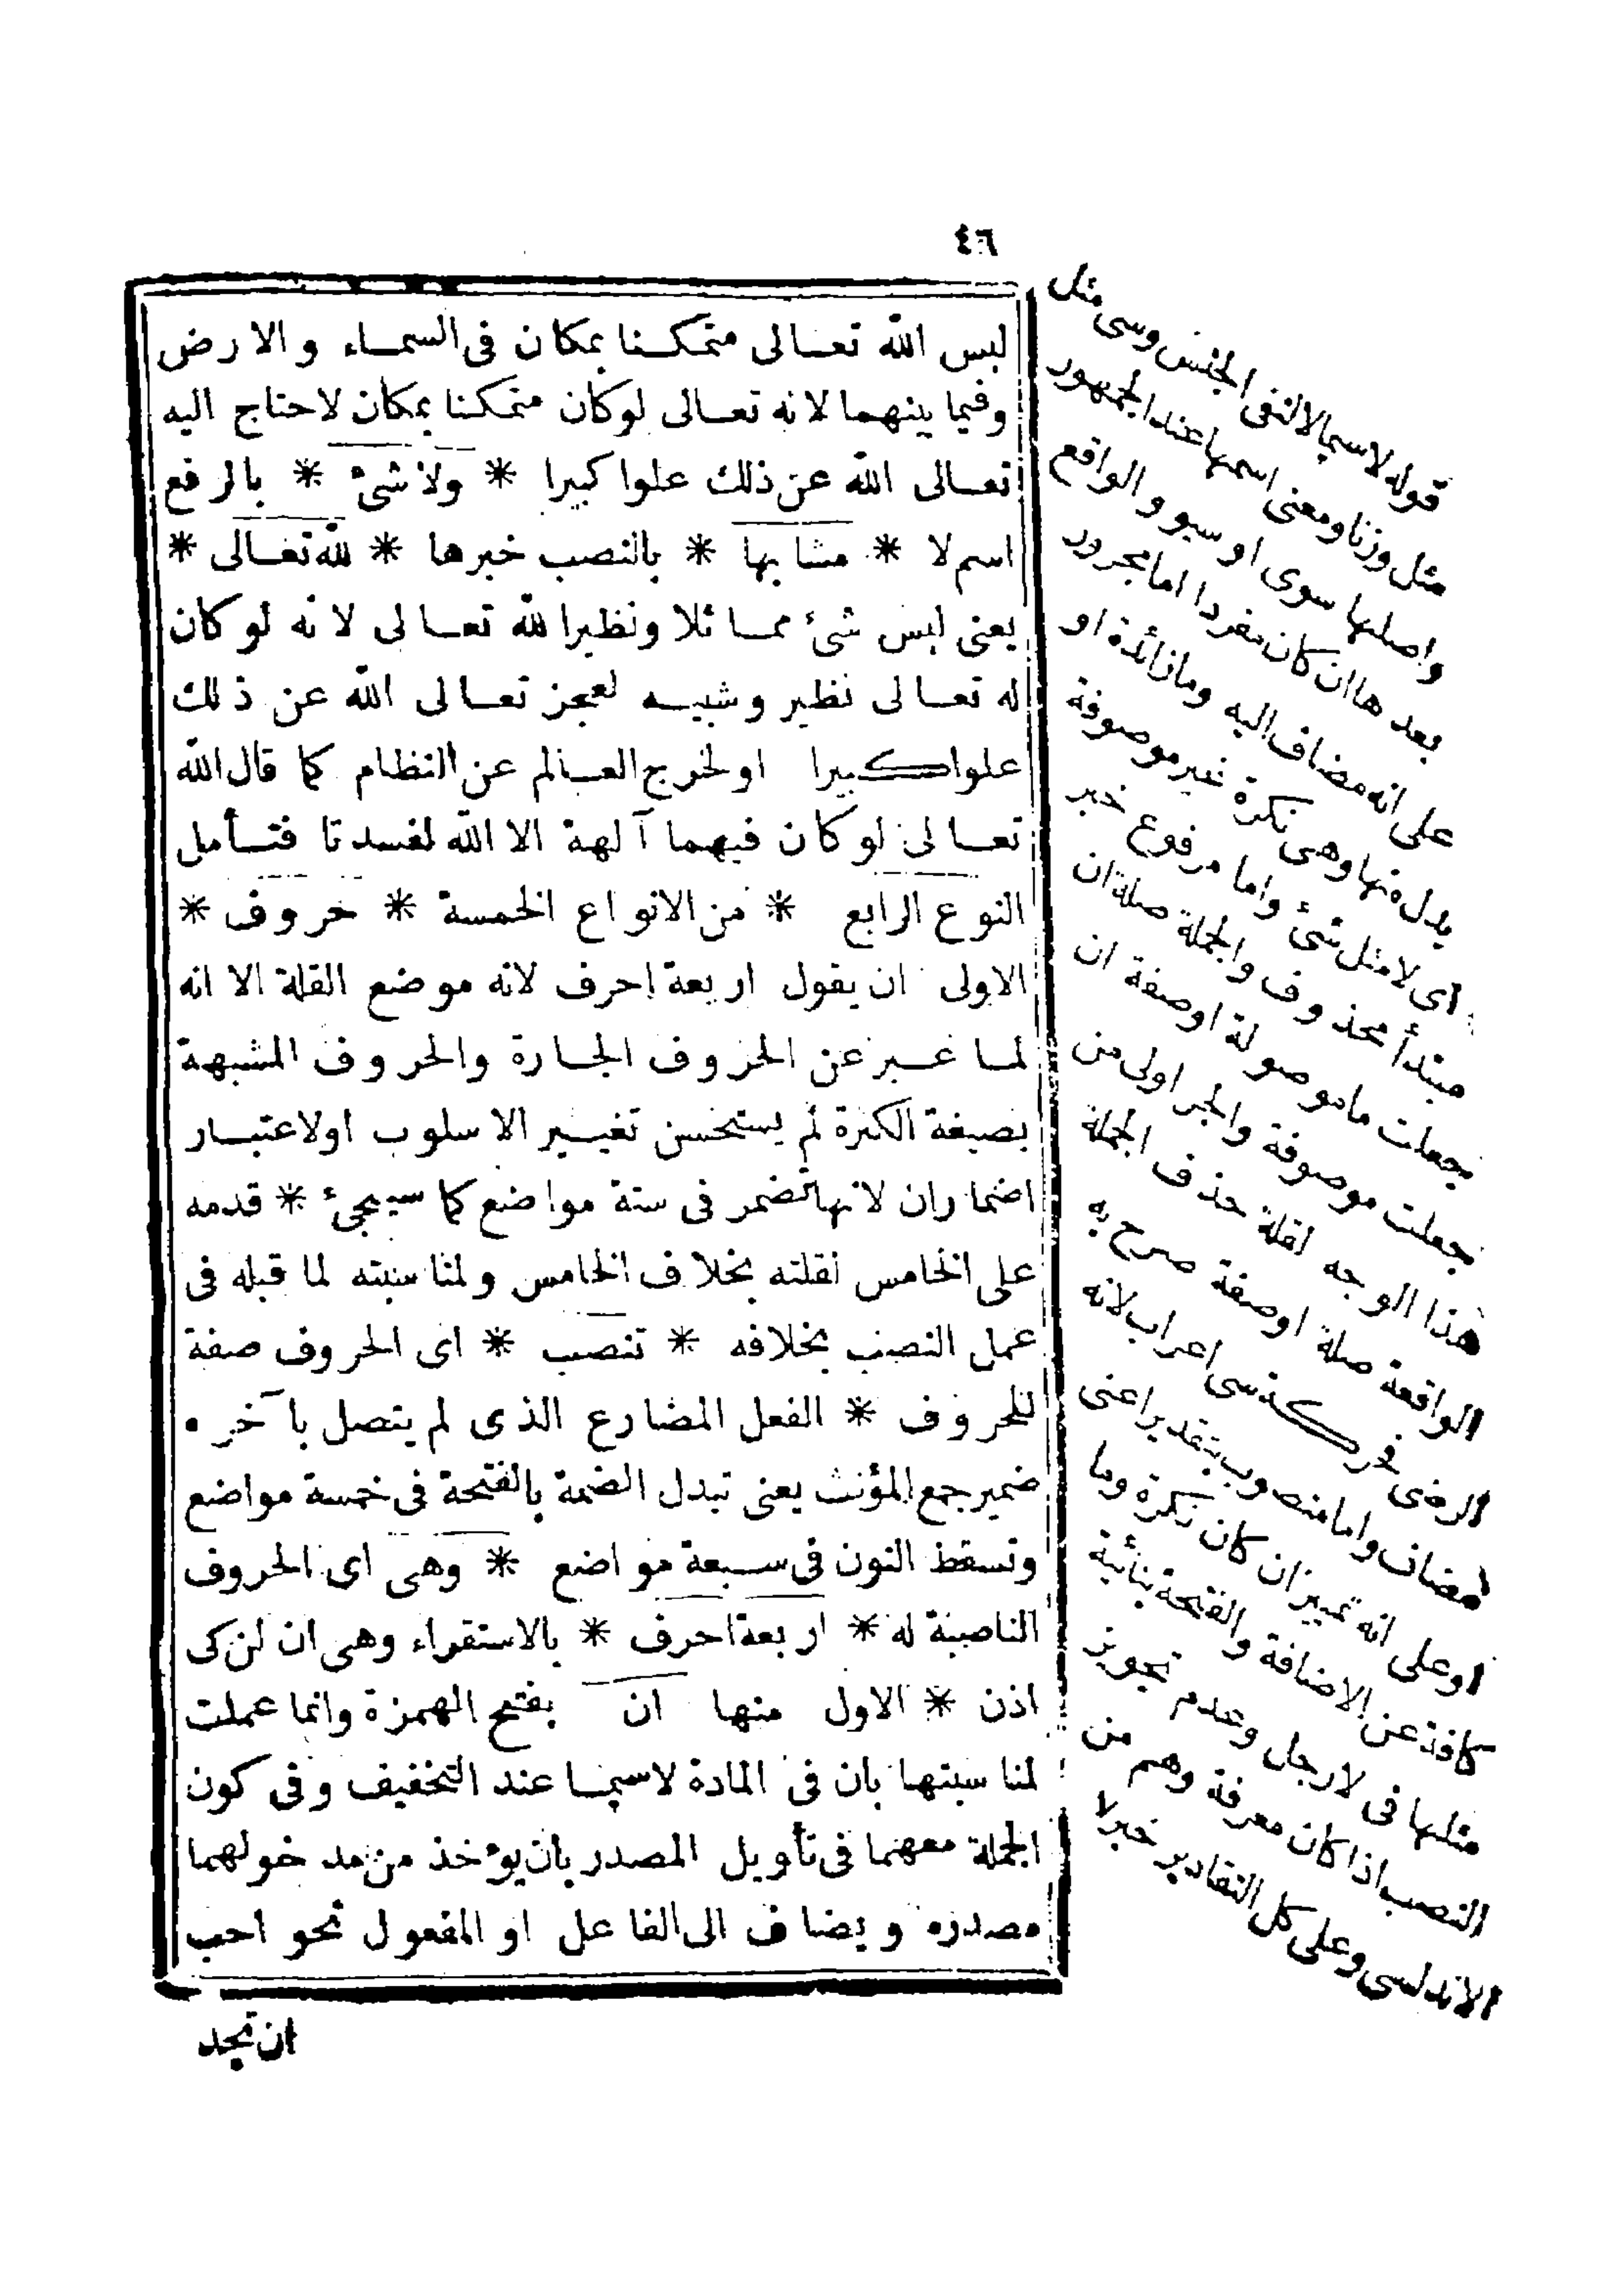 ٤٦
ليس الله تعالى متمكنا بمكان فى السماء والارض
وفيما بينهما لانه تعالى لوكان متمكنا بمكان لاحتاج اليه
تعالى الله عن ذلك علوا كبيرا * ولاشئ * بالرفع
اسم لا * مشابها * بالنصب خبرها * لله تعالى *
يعنى ليس شئ مماثلا ونظيرا لله تعالى لانه لوكان
له تعالى نظير وشبيه لعجز تعالى الله عن ذلك
علوا كبيرا اولخرج العالم عن النظام كما قال الله
تعالى لوكان فيهما آلهة الا الله لفسدتا فتأمل
النوع الرابع * من الانواع الخمسة * حروف *
الاولى ان يقول اربعة احرف لانه موضع القلة الا انه
لما عبر عن الحروف الجارة والحروف المشبهة
بصيغة الكثرة لم يستحسن تغيير الاسلوب اولاعتبار
اضمار ان لانها تضمر فى ستة مواضع كما سيجىء * قدمه
على الخامس لقلته بخلاف الخامس ولمناسبته لما قبله فى
عمل النصب بخلافه * تنصب * اى الحروف صفة
للحروف * الفعل المضارع الذى لم يتصل بآخره
ضمير جمع المؤنث يعنى تبدل الضمة بالفتحة فى خمسة مواضع
وتسقط النون فى سبعة مواضع * وهى اى الحروف
الناصبة له * اربعة احرف * بالاستقراء وهى ان لن كى
اذن * الاول منها ان بفتح الهمزة وانما عملت
لمناسبتها بان فى المادة لاسيما عند التخفيف وفى كون
الجملة معهما فى تأويل المصدر بان يؤخذ من مدخولهما
مصدره ويضاف الى الفاعل او المفعول نحو احب
ان تجد
قوله لاسيما لا لنفى الجنس وسى مثل
مثل وزنا ومعنى اسمها عند الجمهور
واصلها سوى او سيو والواقع
بعدها ان كان مفردا اما مجرور
على انه مضاف اليه وما زائدة او
بدل منها وهى نكرة غير موصوفة
اى لا مثل شئ واما مرفوع خبر
مبتدأ محذوف والجملة صلة ان
جعلت ما موصولة او صفة ان
جعلت موصوفة والجر اولى من
هذا الوجه لقلة حذف الجملة
الواقعة صلة او صفة صرح به
الرضى فحركة سى اعراب لانه
مضاف واما منصوب بتقدير اعنى
او على انه تمييز ان كان نكرة وما
كافة عن الاضافة والفتحة بنائية
مثلها فى لارجل وعدم تجويز
النصب اذا كان معرفة وهم من
الاندلسى وعلى كل التقادير خبر لا